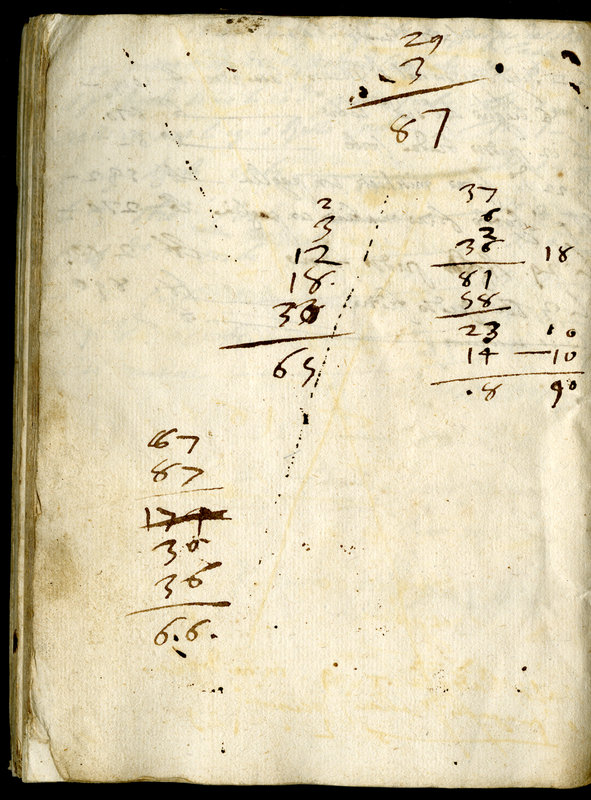 29
3
87
2
3
12
18
30
65
37
6
2
36 18
81
58
23 10
14 — 10
.8 90
67
87
30
36
6.6.